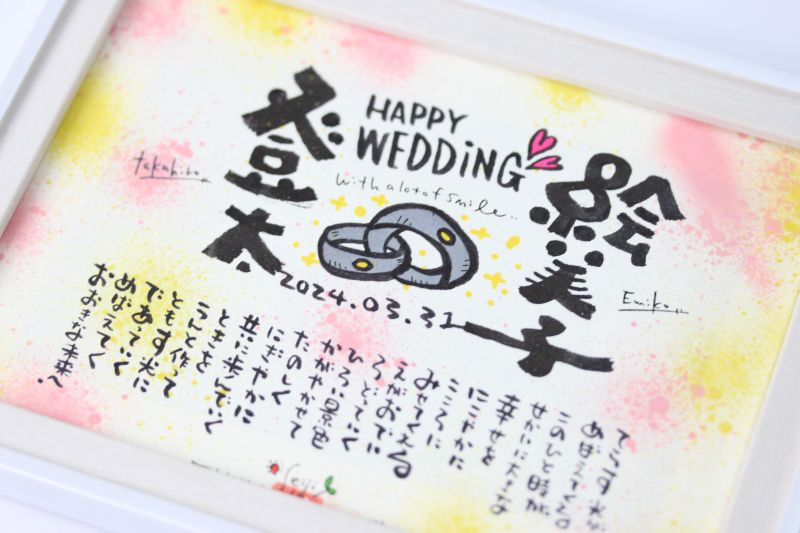 HAPPY
WEDDiNG
with a lot of smile..
登太
takahiro
絵美子
Emiko
2024.03.31
てらす光が
めばえてくる
このひと時が
せかいに大きな
幸せを
にこやかに
こころに
みせてくれる
えがおでに
ひろい景色
かがやかせて
たのしく
にぎやかに
共に歩んでいく
ときを
うんと作って
ともす光に
であっていく
めばえてく
おおきな未来へ